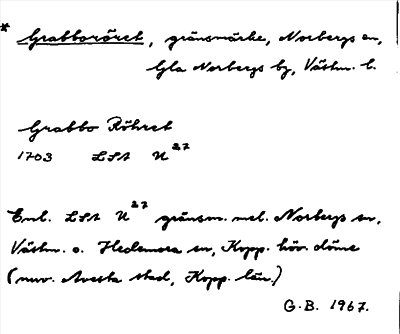 * Grabboröret, gränsmärke, Norbergs sn,
Gla Norbergs by, Västm. l.
Grabbo Röhret
1703 LSA U27
Enl. LSA U27 gränsm. mel. Norbergs sn,
Västm. o. Hedemora sn, Kopp. höv. döme
(nuv. Avesta stad, Kopp. län.)
G.B. 1967.